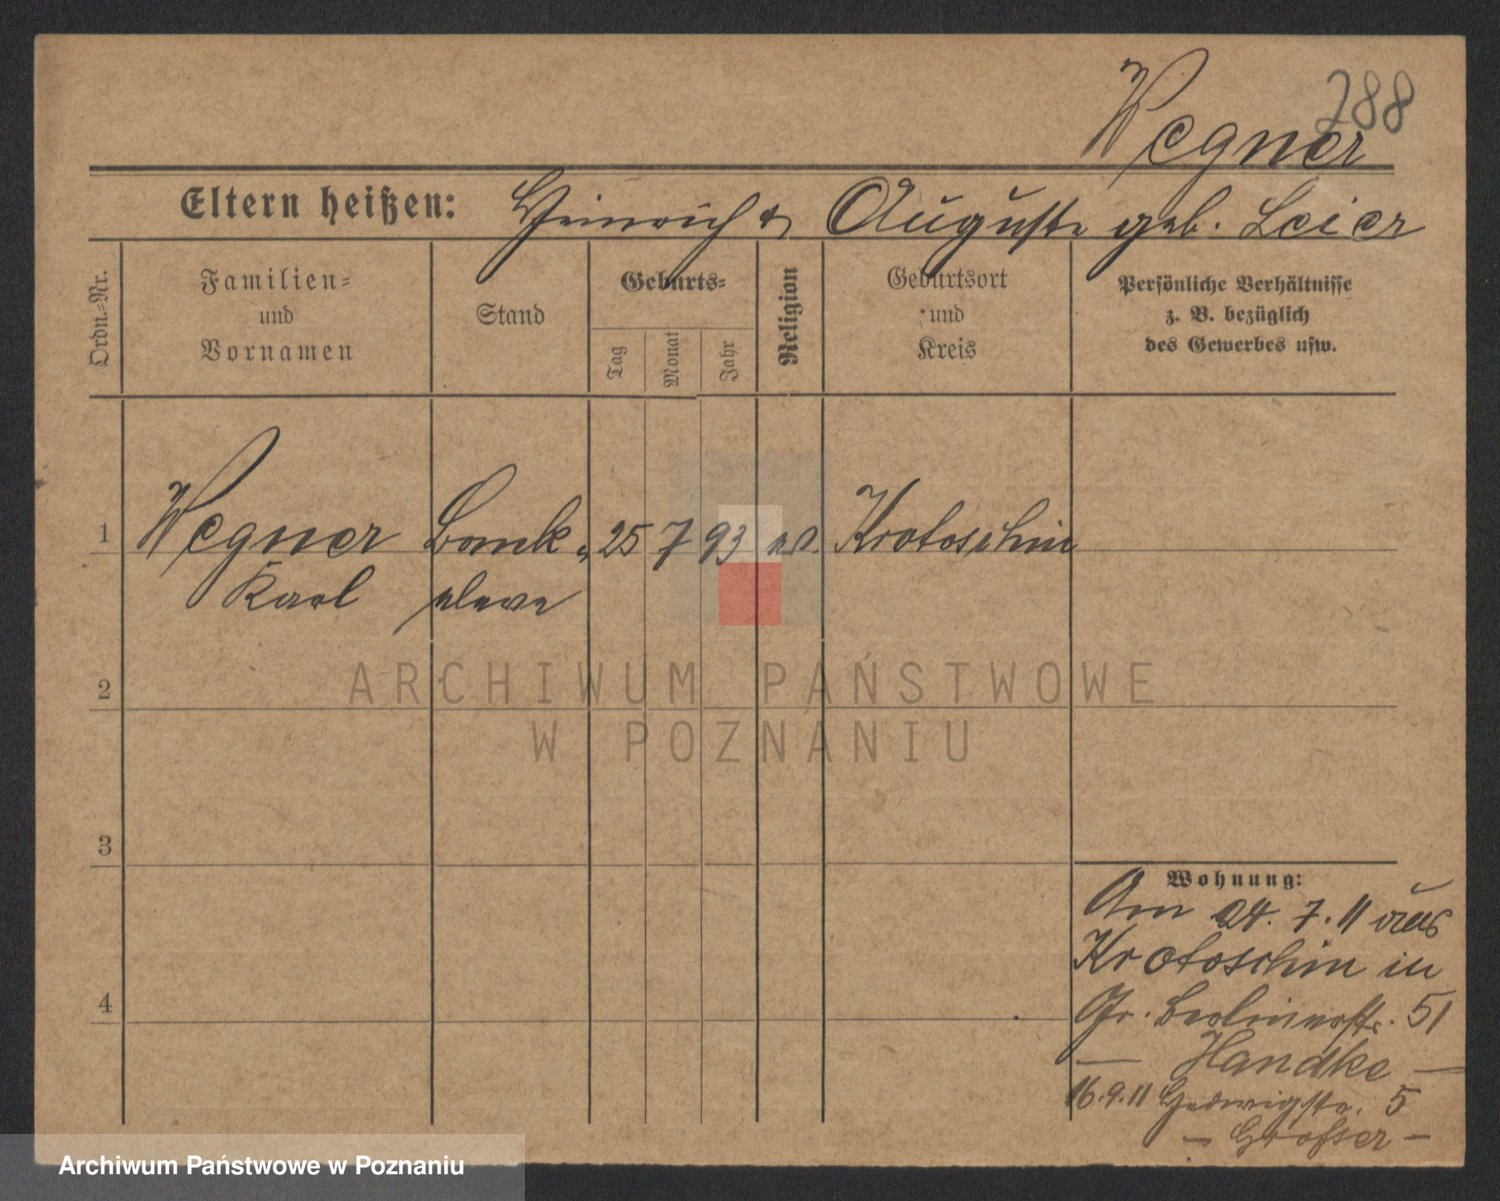 788
Wegner
Eltern heißen: Heinrich & Auguste geb. Leier
Ordn.-Nr.
Familien-
und
Vornamen
Stand
Geburts-
Tag
Monat
Jahr
Religion
Geburtsort
und
Kreis
Persönliche Verhältnisse
z. B. bezüglich
des Gewerbes usw.
1 Wegner Bank- 25 7 93 ev. Krotoschin
Karl eleve
2
3
4
Wohnung:
Am 24. 7. 11 aus
Krotoschin in
Gr. Berlinerstr. 51
— Handke —
16.9.11 Hedwigstr. 5
— Grosser —
ARCHIWUM PAŃSTWOWE
W POZNANIU
Archiwum Państwowe w Poznaniu